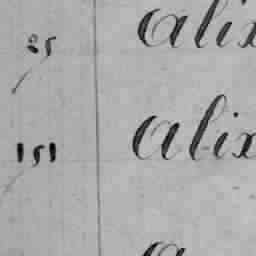 25 Alix
151 Alix